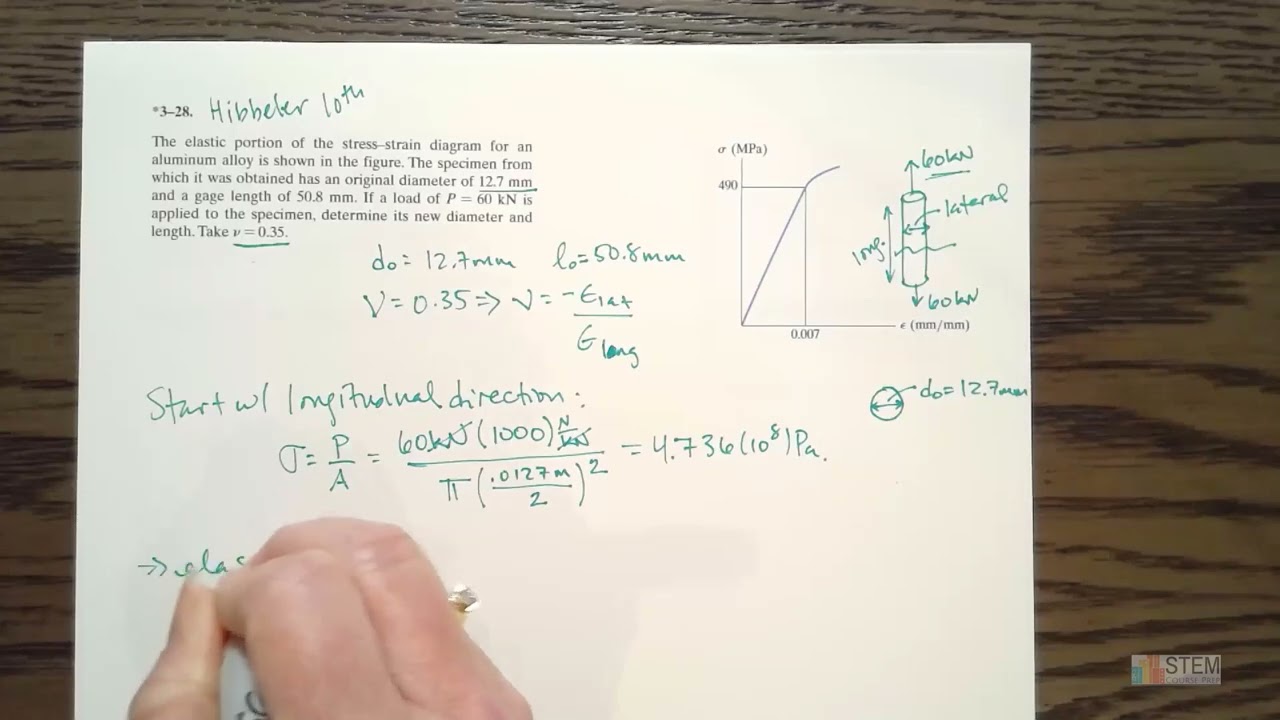 *3–28. Hibbeler 10th
The elastic portion of the stress–strain diagram for an
aluminum alloy is shown in the figure. The specimen from
which it was obtained has an original diameter of 12.7 mm
and a gage length of 50.8 mm. If a load of P = 60 kN is
applied to the specimen, determine its new diameter and
length. Take ν = 0.35.
σ (MPa)
490
0.007
ϵ (mm/mm)
60kN
lateral
long.
60kN
d₀ = 12.7mm l₀ = 50.8mm
ν = 0.35 ⇒ ν = -ϵlat / ϵlong
Start w/ longitudual direction:
d₀ = 12.7mm
σ = P/A = 60kN(1000)N/kN / π(.0127m/2)² = 4.736(10⁸)Pa.
⇒ elas
STEM
COURSE PREP